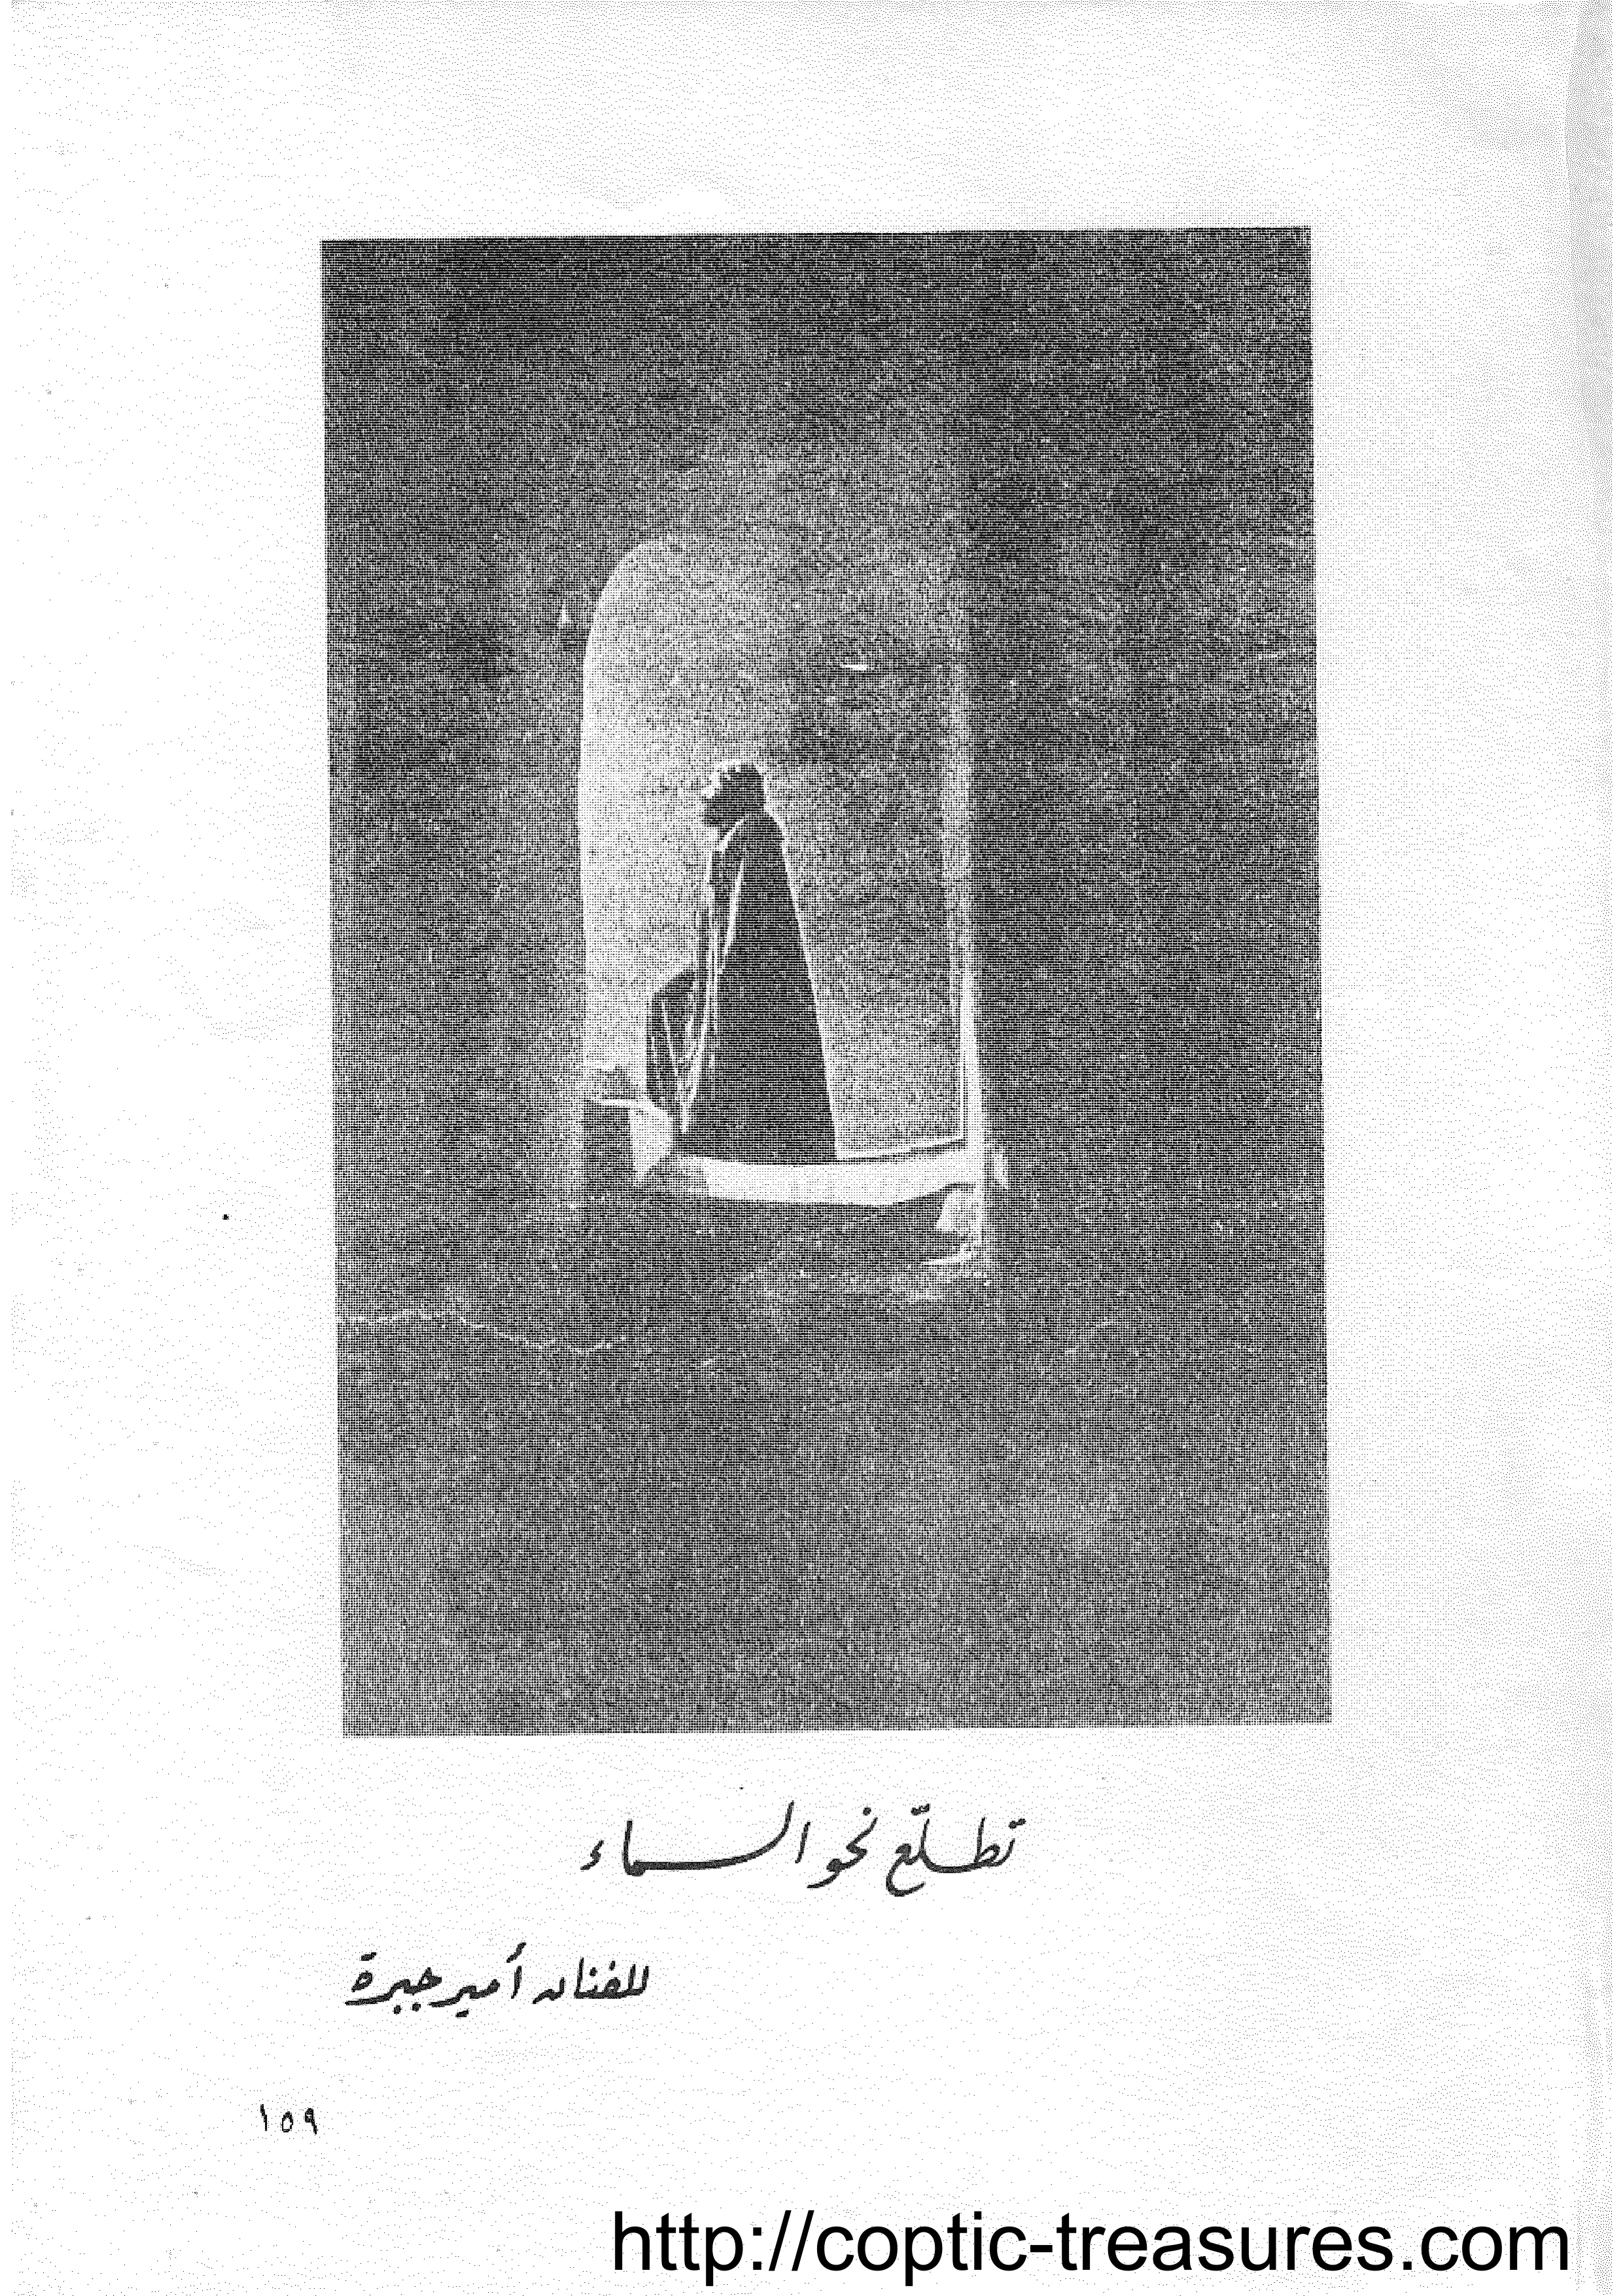 تطلّع نحو السماء
للفنان أمير جبرة
١٥٩
http://coptic-treasures.com